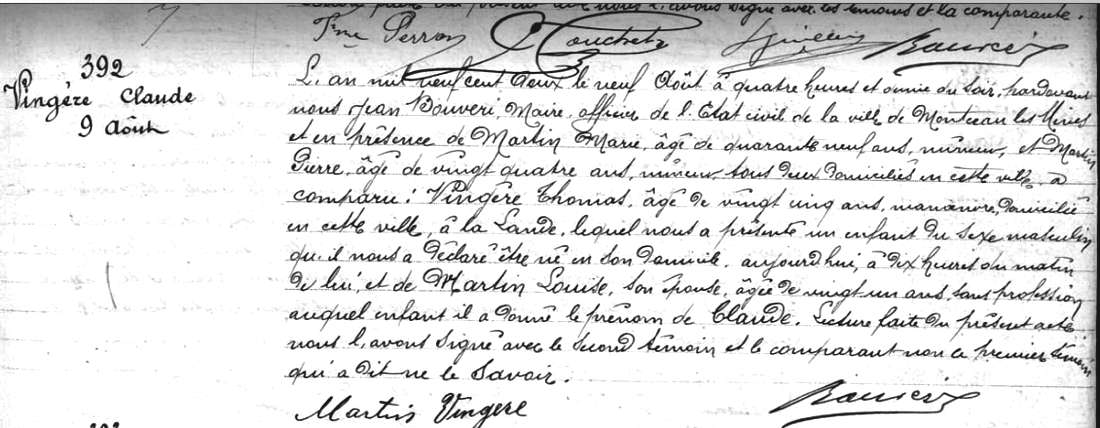 nous l'avons signé avec les témoins et la comparante.
392
Vingère Claude
9 Août
L'an mil neuf cent deux le neuf Août à quatre heures et demie du soir, pardevant
nous Jean Bouveri, Maire, officier de l'Etat civil de la ville de Montceau les Mines
et en présence de Martin Marie, âgé de quarante neuf ans, mineur, et Martin
Pierre, âgé de vingt quatre ans, mineur, tous deux domiciliés en cette ville, a
comparu : Vingère Thomas, âgé de vingt cinq ans, manœuvre, domicilié
en cette ville, à la Lande, lequel nous a présenté un enfant du sexe masculin
qu'il nous a déclaré être né en son domicile, aujourd'hui, à dix heures du matin
de lui, et de Martin Louise, son épouse, âgée de vingt-un ans, sans profession
auquel enfant il a donné le prénom de Claude. Lecture faite du présent acte
nous l'avons signé avec le second témoin et le comparant non le premier témoin
qui a dit ne le savoir.
Martin Vingère